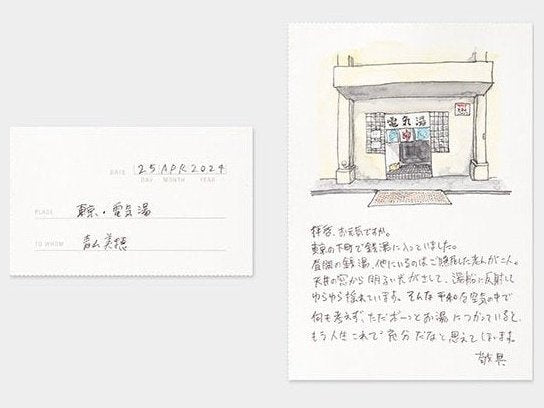 DATE 25 APR 2024
DAY MONTH YEAR
PLACE 東京・電気湯
TO WHOM 青山美穂
電気湯
拝啓、お元気ですか。
東京の下町で銭湯に入っていました。
昼間の銭湯、他にいるのはご隠居さんが二人。
天井の窓から明るい光がさして、湯船に反射して
ゆらゆら揺れています。そんな平和な空気の中で
何も考えず、ただボーッとお湯につかっていると、
もう人生これで充分だなと思えてしまいます。
敬具